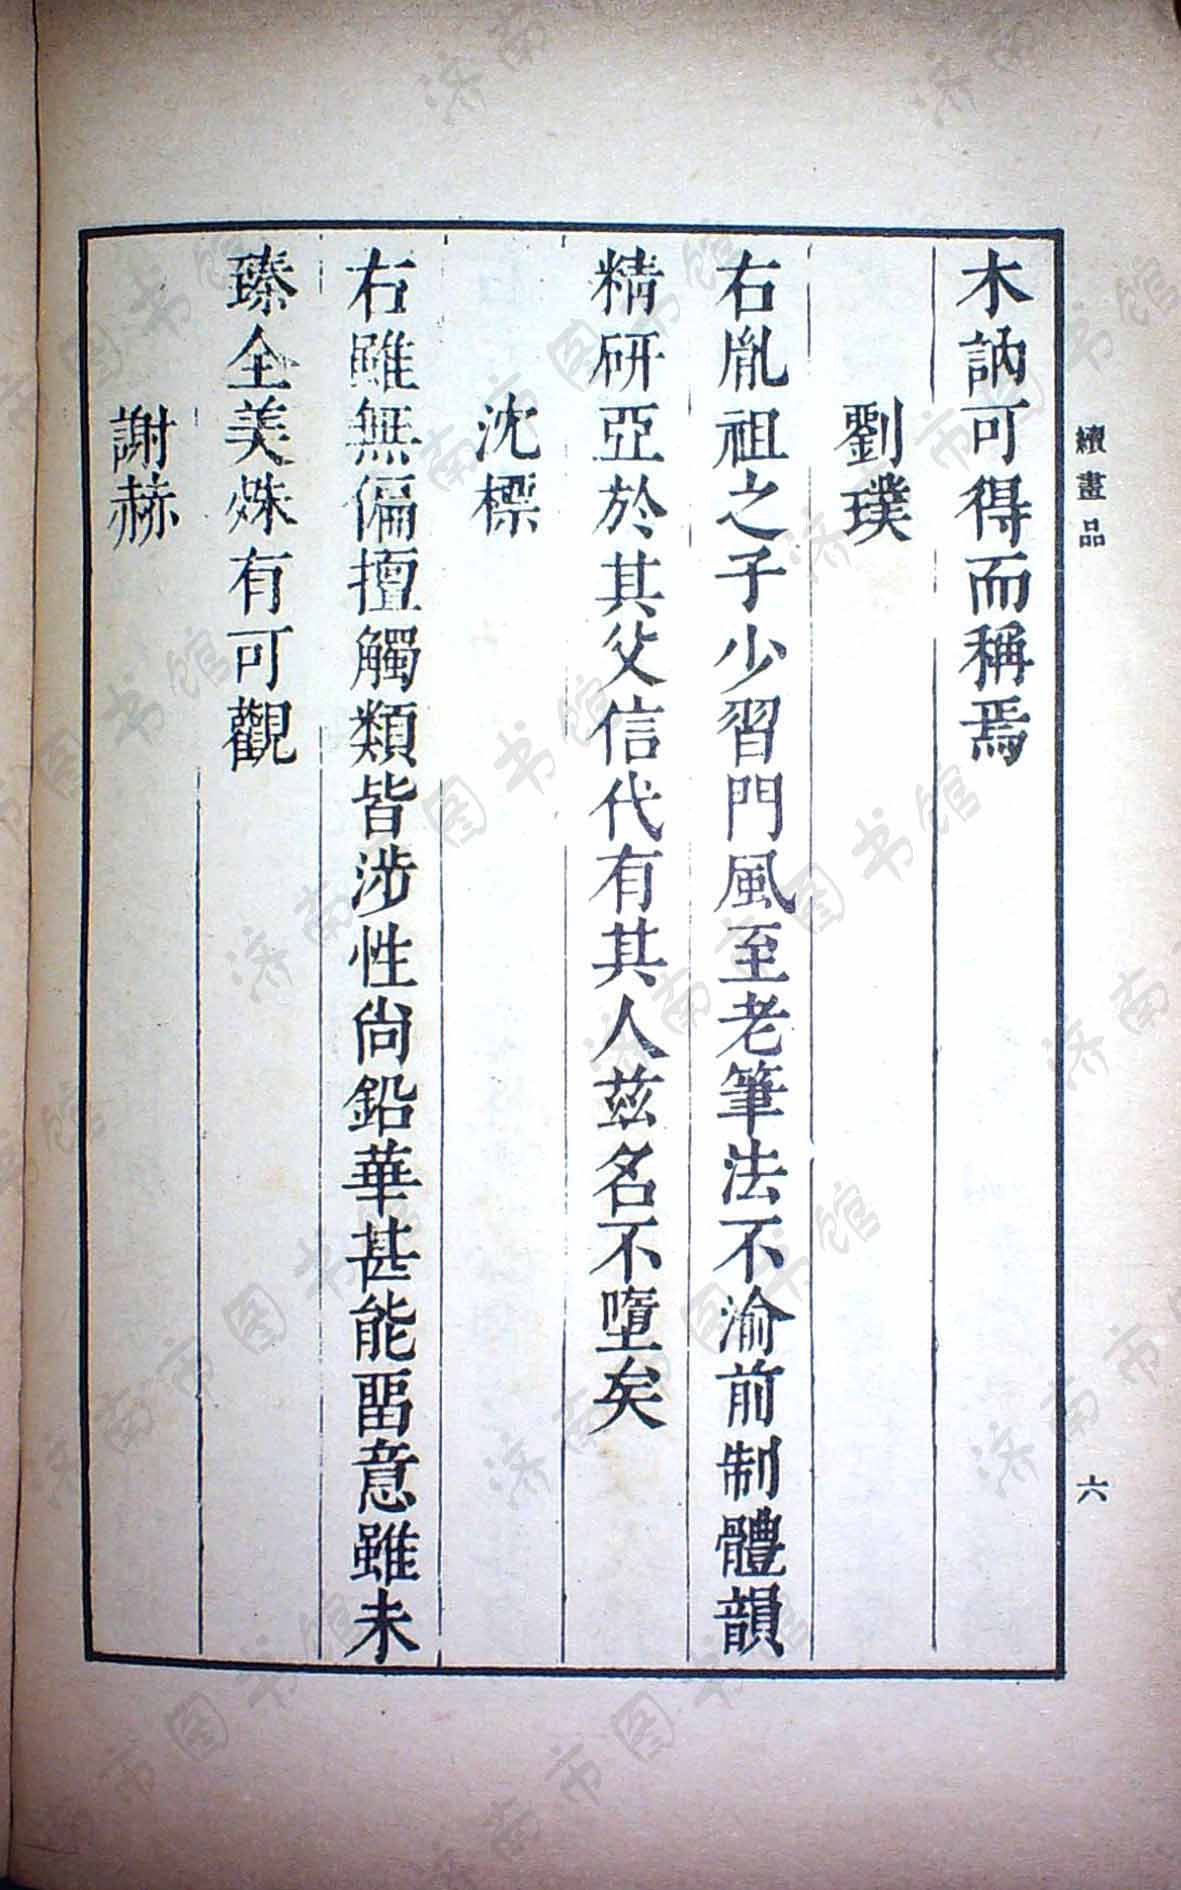 續畫品
六
木訥可得而稱焉
劉璞
右胤祖之子少習門風至老筆法不渝前制體韻
精研亞於其父信代有其人兹名不墮矣
沈標
右雖無偏擅觸類皆涉性尙鉛華甚能畱意雖未
臻全美殊有可觀
謝赫
济南市图书馆